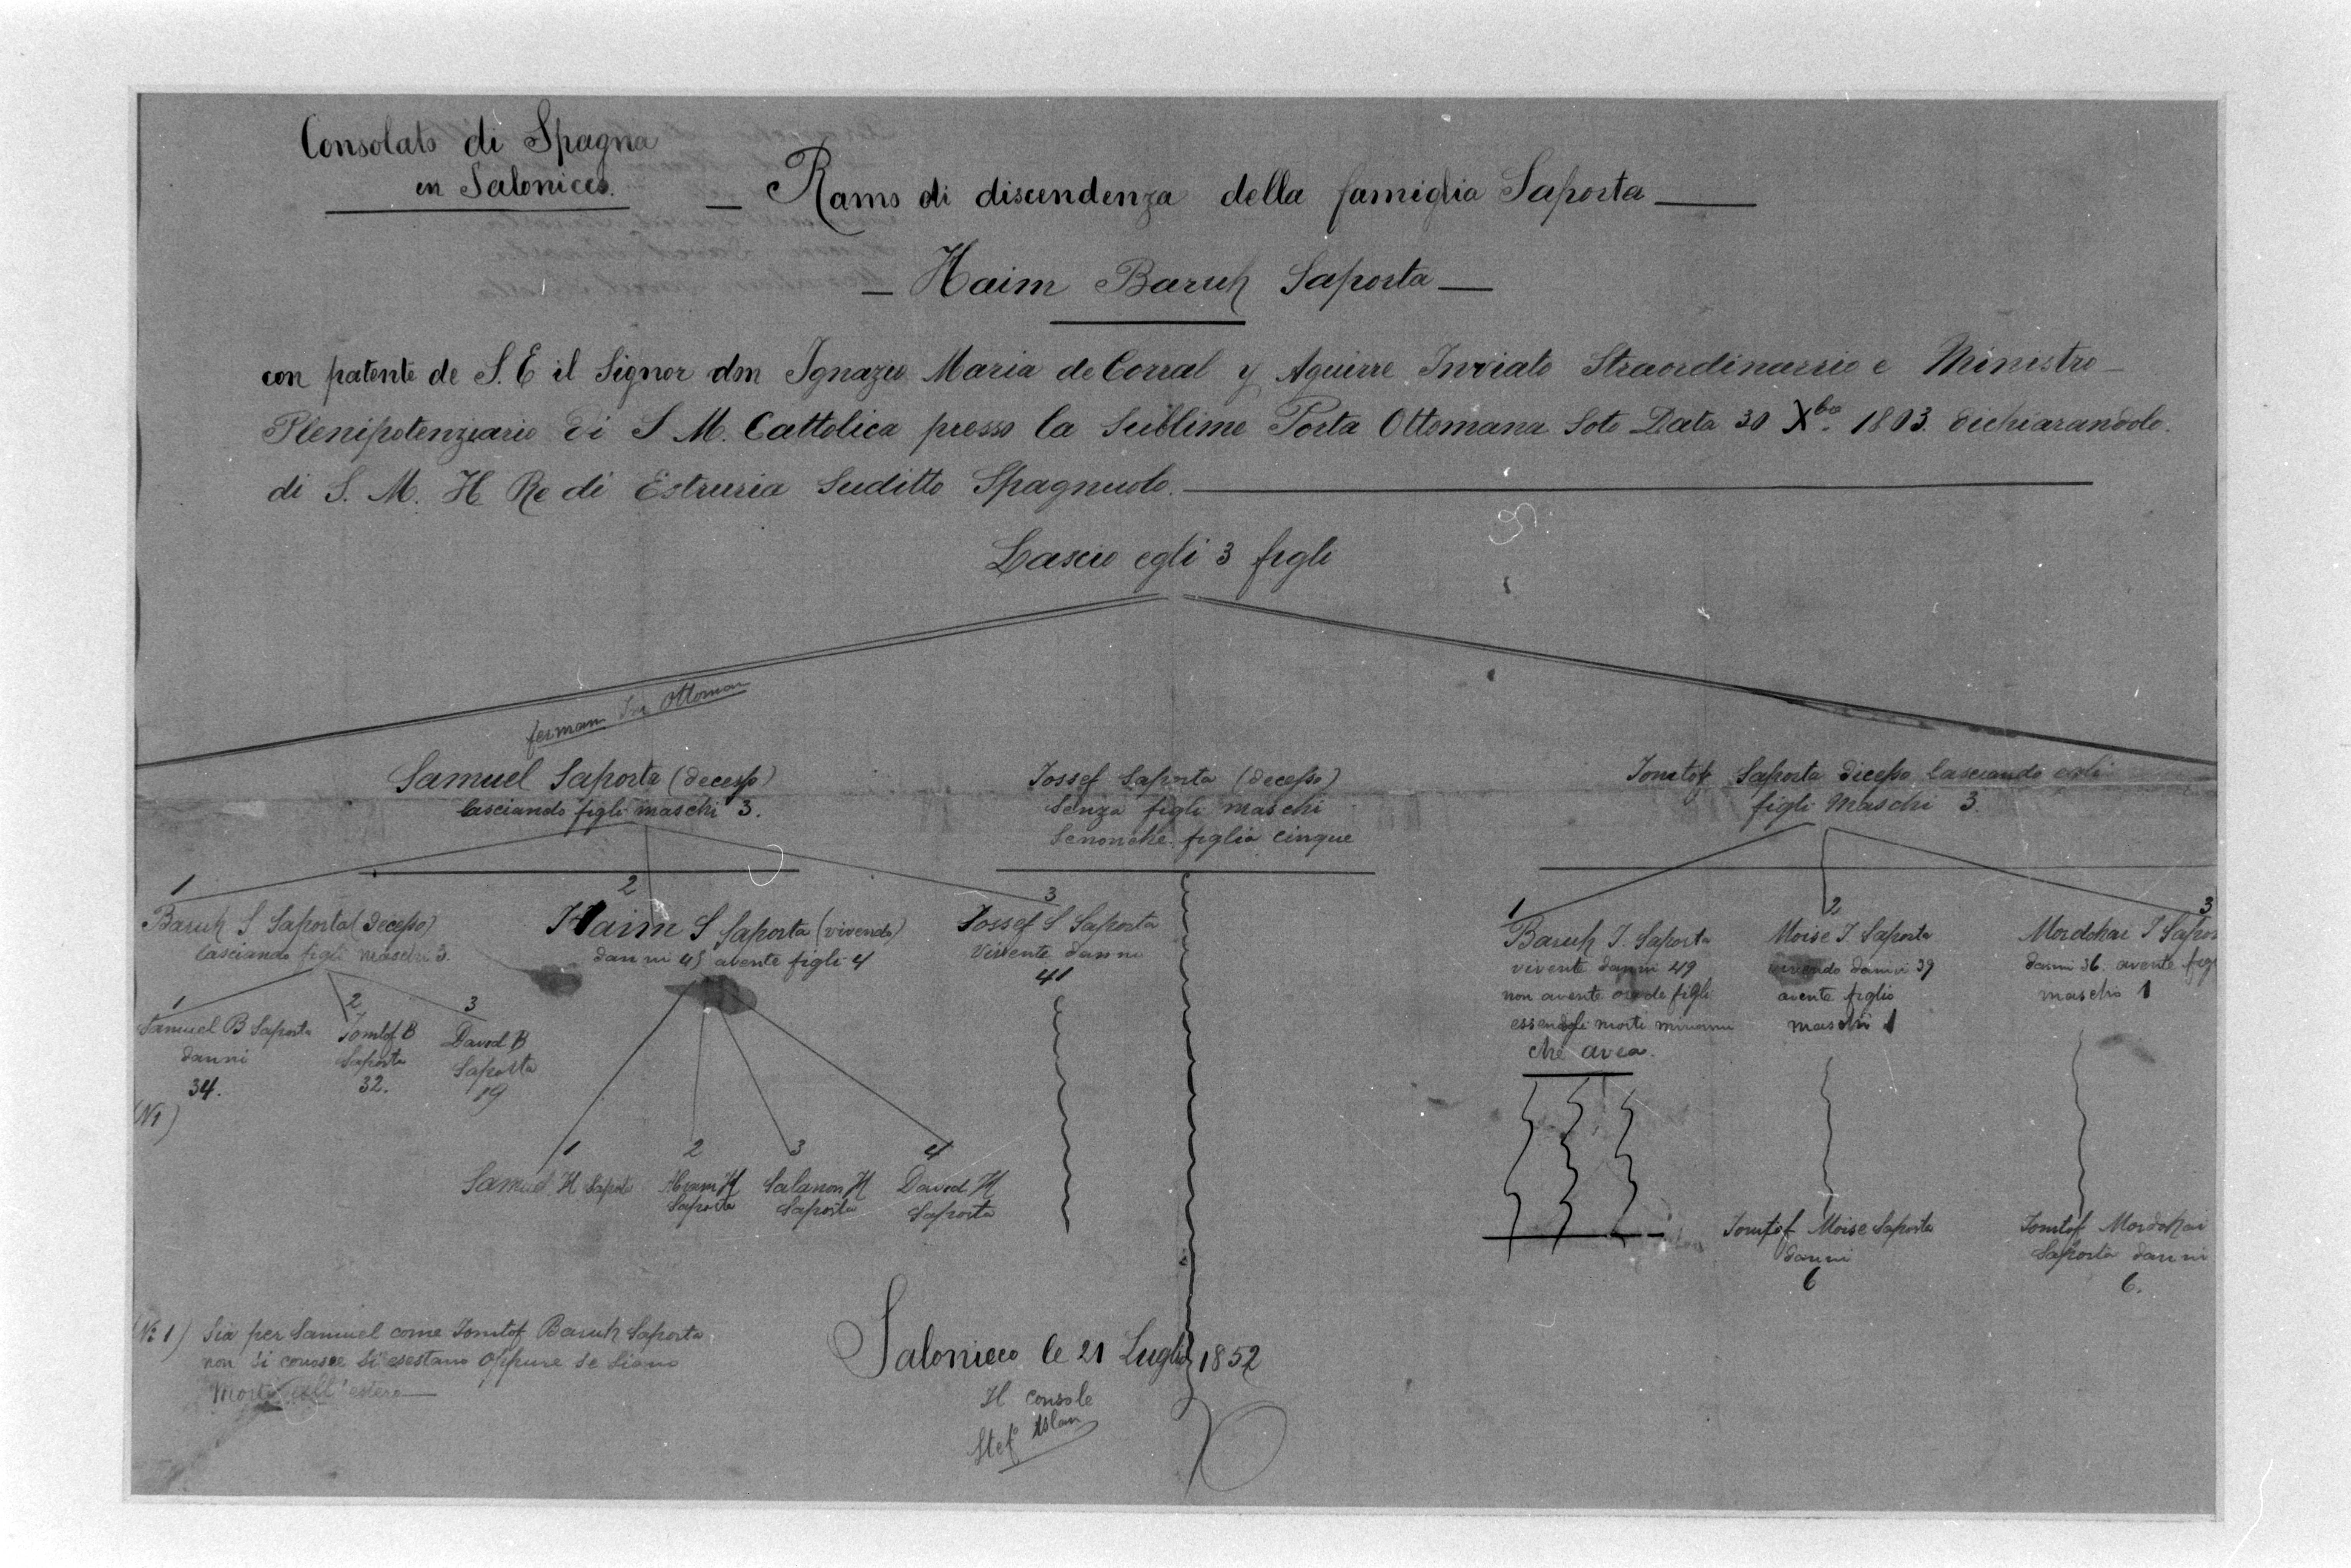 Consolato di Spagna
en Salonicco.
— Ramo di discendenza della famiglia Saporta —
— Haim Baruh Saporta —
con patente de S. E il Signor don Ignazio Maria de Corral y Aguirre Inviato Straordinario e Ministro
Plenipotenziario di S M. Cattolica presso la Sublime Porta Ottomana Soto Data 30 Xbre 1803. dichiarandolo
di S. M. Il Re di Estruria Suditto Spagnuolo.
Lascio egli 3 figli
ferman Ottoman
Samuel Saporta (decesso)
lasciando figli maschi 3.
Jossef Saporta (decesso)
Senza figli maschi
Senonche figlia cinque
Jomtof Saporta dicesso lasciando egli
figli maschi 3.
1
Baruh S Saporta (decesso)
lasciando figli maschi 3.
2
Haim S Saporta (vivendo)
danni 45 avente figli 4
3
Jossef S Saporta
Vivente danni
41
1
Baruh J. Saporta
vivente danni 49
non avente figli
essendogli morti
che avea.
2
Moise J. Saporta
vivendo danni 39
avente figlio
maschi 1
3
Mordohai J Sapor
danni 36. avente fig
maschio 1
1
Samuel B Saporta
danni
34.
2
Jomtof B
Saporta
32.
3
David B
Saporta
19
(N1)
1
Samuel H Saporta
2
Abram H
Saporta
3
Salamon H
Saporta
4
David H
Saporta
Jomtof Moise Saporta
danni
6
Jomtof Mordohai
Saporta danni
6.
(N: 1) Sia per Samuel come Jomtof Baruh Saporta
non si conosce si esestano oppure se siano
morti nell'estero —
Salonicco le 21 Luglio 1852
Il console
Stef